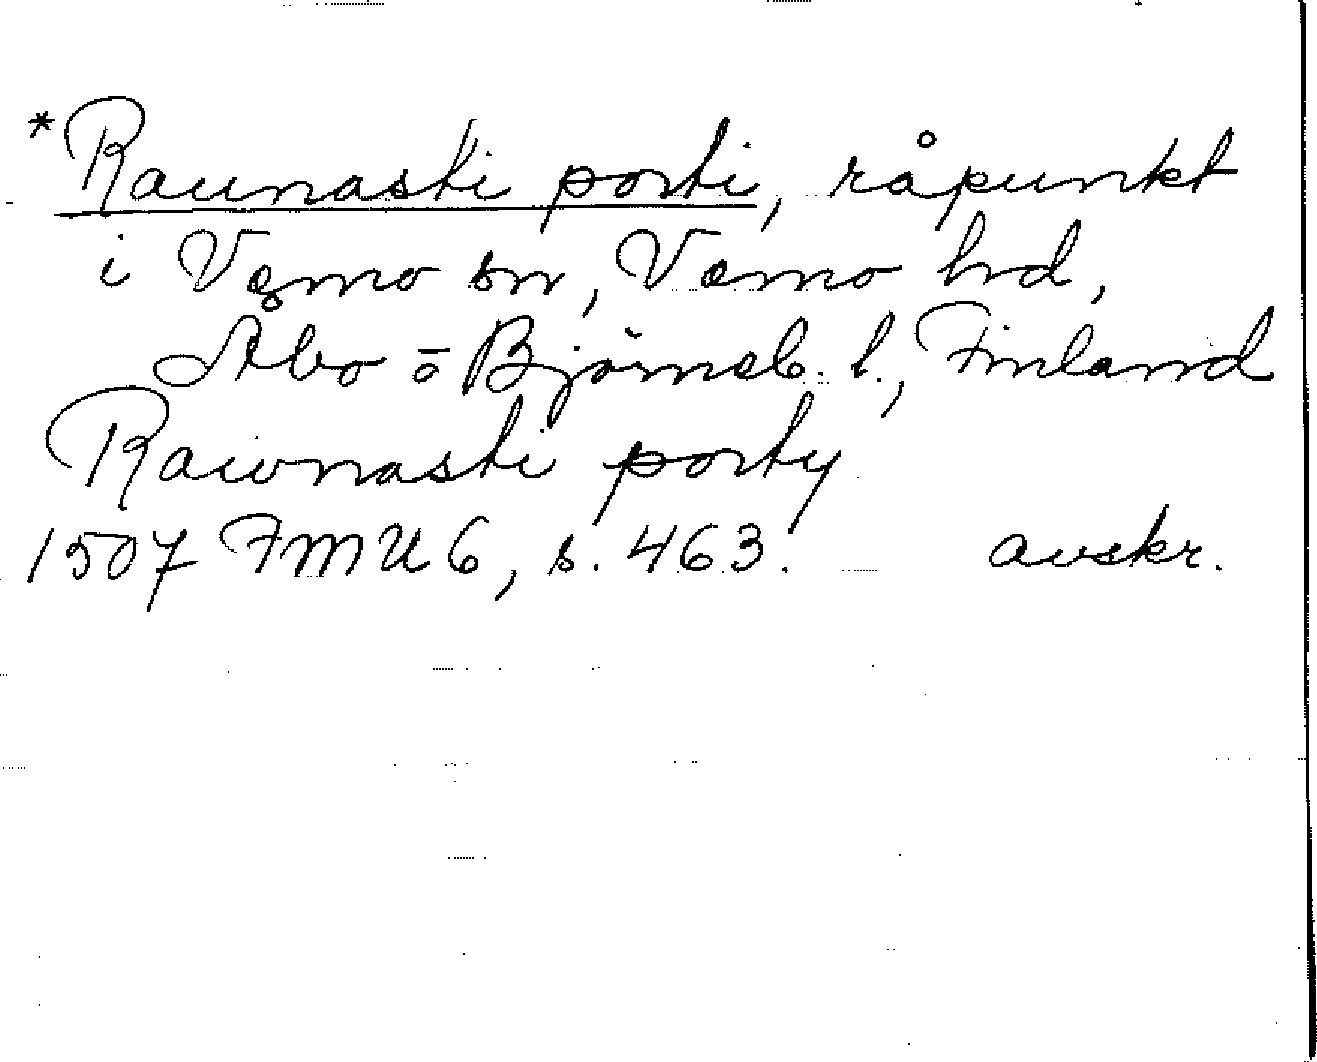 *Raunasti porti, råpunkt
i Vęmo sn, Vemo hd,
Åbo o Björneb. l., Finland
Rawnasti porty
1507 FMU 6, s. 463. avskr.